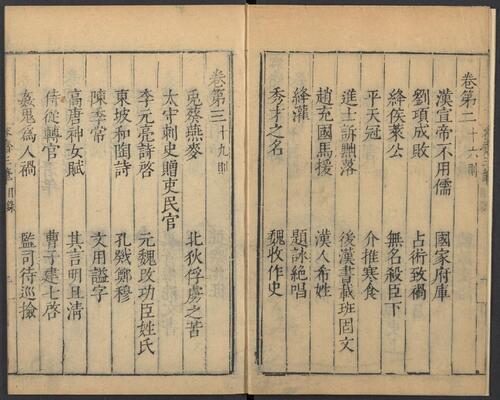 卷第二 十六則
漢宣帝不用儒 國家府庫
劉項成敗 占術致禍
絳侯萊公 無名殺臣下
平天冠 介推寒食
進士訴黜落 後漢書載班固文
趙充國馬援 漢人希姓
絳灌 題詠絕唱
秀才之名 魏收作史
卷第三 十九則
兎葵燕麥 北狄俘虜之苦
太守刺史贈吏民官
李元亮詩啓 元魏改功臣姓氏
東坡和陶詩 孔戣鄭穆
陳季常 文用謚字
高唐神女賦 其言明且清
侍從轉官 曹子建七啓
姦鬼為人禍 監司待巡撿